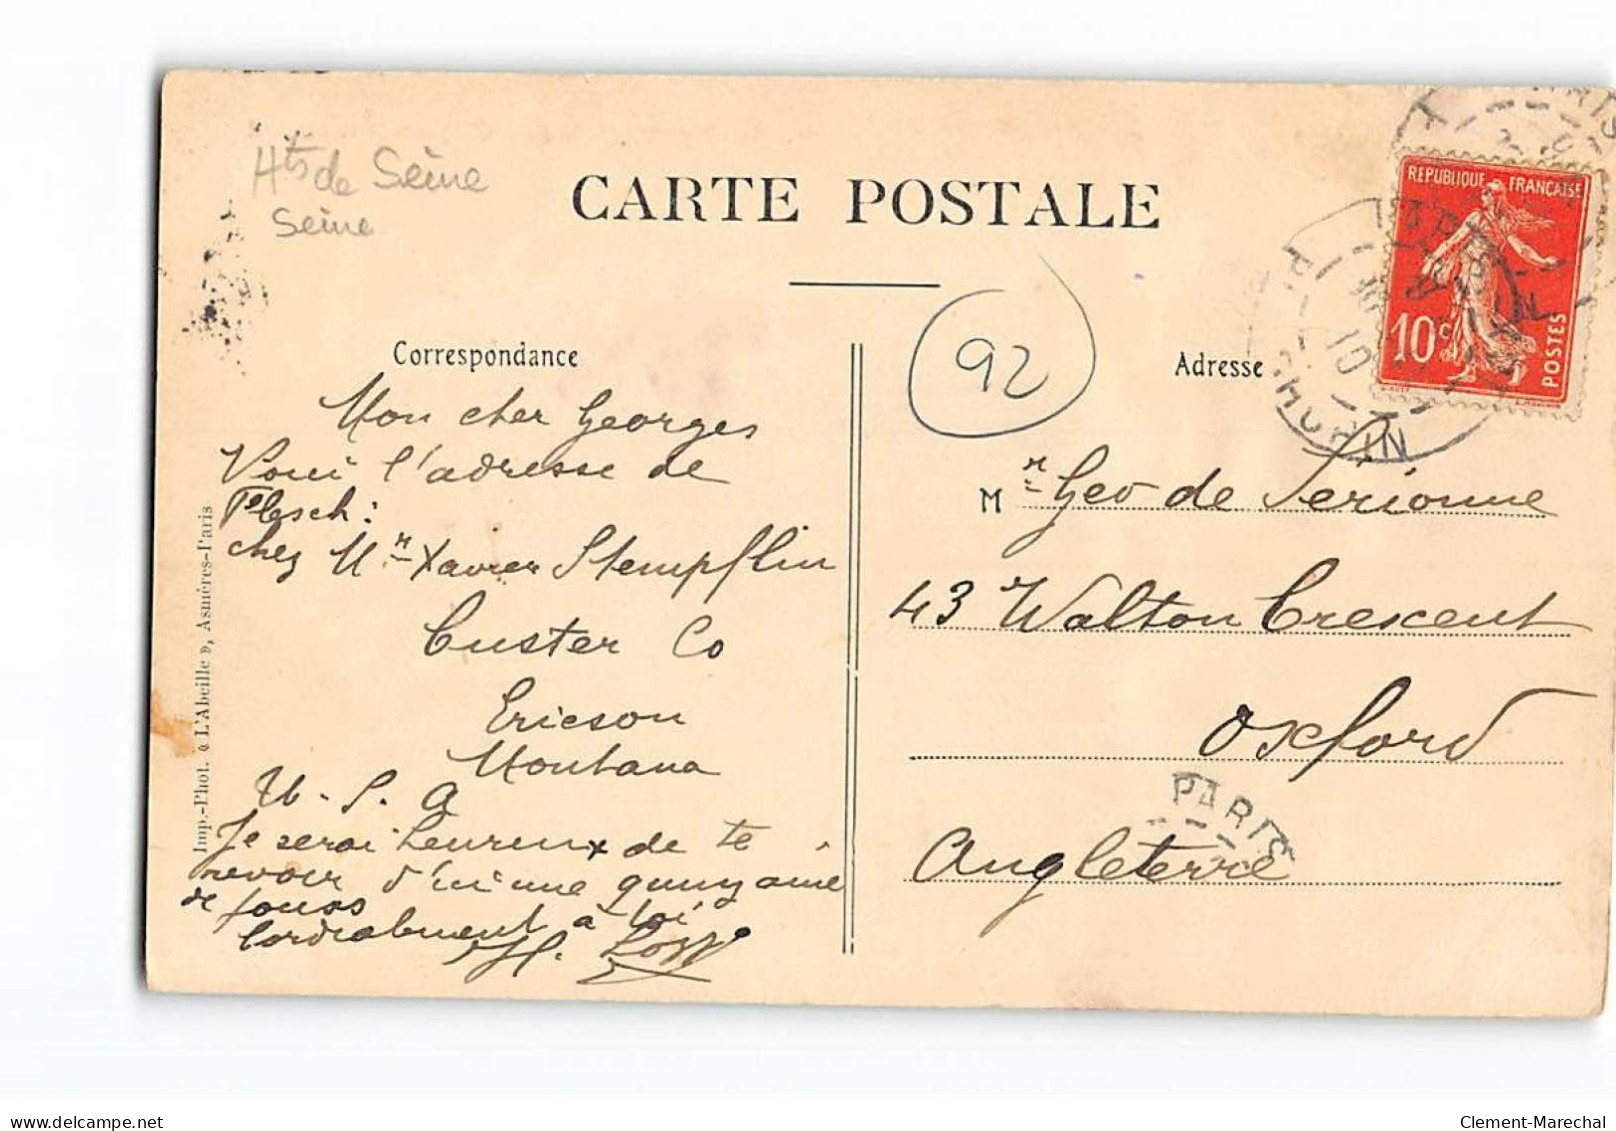 Hts de Seine
Seine
CARTE POSTALE
92
REPUBLIQUE FRANÇAISE
10c
POSTES
Correspondance
Adresse
Mon cher Georges
Voici l'adresse de
Plesch:
chez Mr Xavier Stempflin
Custer Co
Ericson
Montana
U.S.A
Je serai heureux de te
revoir d'ici une quinzaine
de jours
Cordialement à toi
H.
Mr Geo de Serionne
43 Walton Crescent
Oxford
Angleterre
PARIS
Imp.-Phot. « L'Abeille », Asnières-Paris
delcampe.net
Clement-Marechal